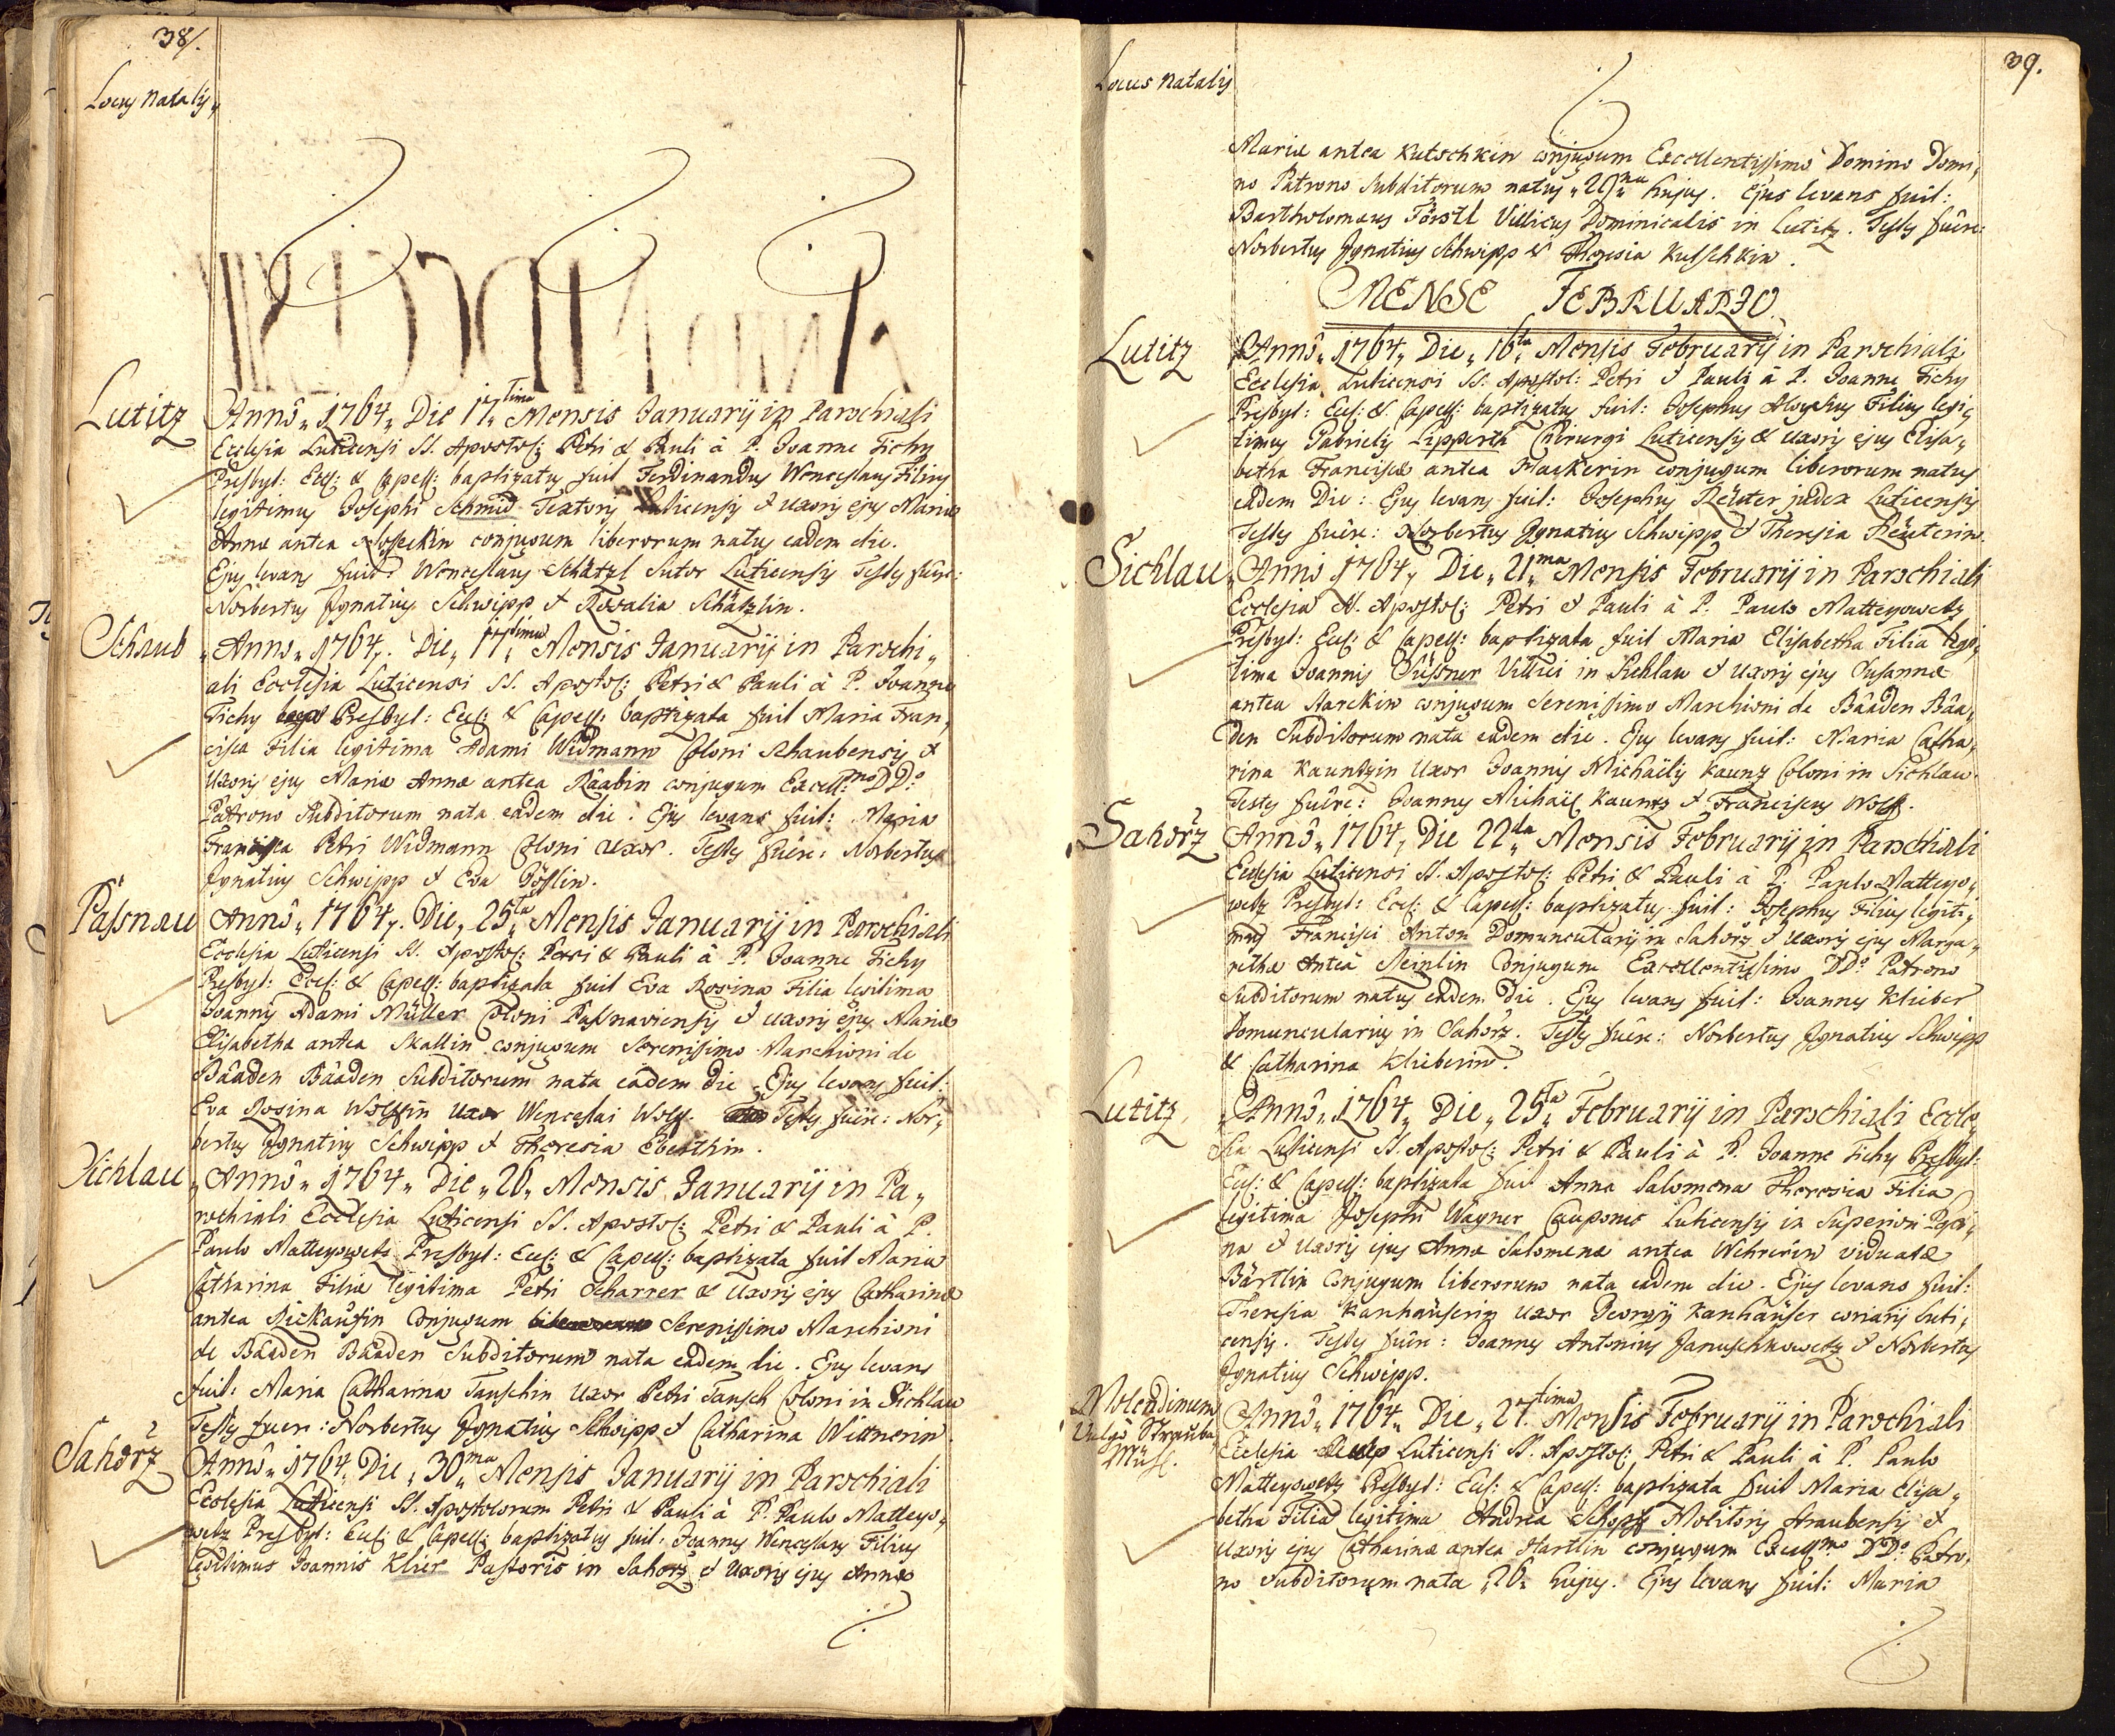 38.
Locus Natalis
Lutitz
Annô 1764 Die 17tima Mensis Januarij in Parochiali
Ecclesia Luticensi SS. Apostol: Petri & Pauli à P. Joanne Tichy
Presbyt: Eccl: & Capell: baptizatus fuit Ferdinandus Wenceslaus Filius
legitimus Josephi Schmid Textoris Luticensis & Uxoris ejus Mariæ
Annæ antea conjugum liberorum natus eadem die.
Ejus levans fuit: Wenceslaus Schätzl Sutor Luticensis Testes fuêre:
Norbertus Ignatius Schwipp & Rosalia Schätzlin.
Schaub
Anno 1764. Die 17tima Mensis Januarij in Parochi,
ali Ecclesia Luticensi SS. Apostol: Petri & Pauli à P. Joanne
Tichy Presbyt: Eccl: & Capell: baptizata fuit Maria Fran,
cisca Filia legitima Adami Widmann Coloni Schaubensis &
Uxoris ejus Mariæ Annæ antea Raabin conjugum Excell:mo DDo
Patrono Subditorum nata eadem die. Ejus levans fuit: Maria
Francisca Petri Widmann Coloni Uxor. Testes fuêre: Norbertus
Ignatius Schwipp & Eva
Passnau
Annô 1764. Die 25ta Mensis Januarij in Parochiali
Ecclesia Luticensi SS. Apostol: Petri & Pauli à P. Joanne Tichy
Presbyt: Eccl: & Capell: baptizata fuit Eva Rosina Filia legitima
Joannis Adami Müller Coloni Passnaviensis & Uxoris ejus Mariæ
Elisabetha antea Skallin conjugum Serenissimo Marchioni de
Bâaden Bâaden Subditorum nata eâdem die. Ejus levans fuit:
Eva Rosina Wolffin Uxor Wenceslai Wolff. Testes fuêre: Nor,
bertus Ignatius Schwipp & Theresia
Sichlau
Annô 1764 Die 26 Mensis Januarij in Pa,
rochiali Ecclesia Luticensi SS. Apostol: Petri & Pauli à P.
Paulo Matteyowetz Presbyt: Eccl: & Capell: baptizata fuit Maria
Catharina Filia legitima Petri Scharrer & Uxoris ejus Catharinæ
antea Conjugum Serenissimo Marchioni
de Bâaden Bâaden Subditorum nata eadem die. Ejus levans
fuit: Maria Catharina Tauschin Uxor Petri Tausch Coloni in Sichlau
Testes fuere: Norbertus Ignatius Schwipp & Catharina Wittnerin.
Sahorz
Annô 1764 Die 30ma Mensis Januarij in Parochiali
Ecclesia Luticensi SS. Apostolorum Petri & Pauli à P. Paulo Matteyo,
wetz Presbyt: Eccl: & Capell: baptizatus fuit: Joannes Wenceslaus Filius
legitimus Joannis Klier Pastoris in Sahorz & Uxoris ejus Annæ
39.
Locus Natalis
Mariæ antea Kutschkin conjugum Excellentissimo Domino Domi,
no Patrono Subditorum natus 29na hujus. Ejus levans fuit:
Bartholomæus Törstl Villicus Dominicalis in Lutitz. Testes fuêre:
Norbertus Ignatius Schwipp & Theresia Kutschkin.
MENSE FEBRUARIO.
Lutitz
Annô 1764 Die 16ta Mensis Februarij in Parochiali
Ecclesia Luticensi SS. Apostol: Petri & Pauli à P. Joanne Tichy
Presbyt: Eccl: & Capell: baptizatus fuit: Josephus Aloysius Filius legi,
timus Gabrielis Lippertt Chirurgi Luticensis & Uxoris ejus Elisa,
betha Franciscæ antea Hackerin conjugum liberorum natus
eâdem Die: Ejus levans fuit: Josephus Reüter judex Luticensis
Testes fuêre: Norbertus Ignatius Schwipp & Theresia Reüterin.
Sichlau
Annô 1764 Die 21ma Mensis Februarij in Parochiali
Ecclesia SS. Apostol: Petri & Pauli à P. Paulo Matteyowetz
Presbyt: Eccl: & Capell: baptizata fuit Maria Elisabetha Filia legi,
tima Joannis Süssner Villici in Sichlau & Uxoris ejus Susannæ
antea Starckin conjugum Serenissimo Marchioni de Bâaden Bâa,
den Subditorum nata eâdem die. Ejus levans fuit: Maria Catha,
rina Kauntzin Uxor Joannis Michaëlis Kauntz Coloni in Sichlau.
Testes fuêre: Joannes Michaël Kauntz & Franciscus Wolff.
Sahorz
Annô 1764 Die 22da Mensis Februarij in Parochiali
Ecclesia Luticensi SS. Apostol: Petri & Pauli à P. Paulo Matteyo,
wetz Presbyt: Eccl: & Capell: baptizatus fuit: Josephus Filius legiti,
mus Francisci Anton Domuncularij in Sahorz & Uxoris ejus Marga,
retha Antea Steinlin Conjugum Excellentissimo DDo Patrono
Subditorum natus eâdem Die. Ejus levans fuit: Joannes Klieber
Domuncularius in Sahorz. Testes fuêre: Norbertus Ignatius Schwipp
& Catharina Klieberin.
Lutitz
Annô 1764 Die 25ta Februarij in Parochiali Eccle,
sia Luticensi SS. Apostol: Petri & Pauli à P. Joanne Tichy Presbyt:
Eccl: & Capell: baptizata fuit Anna Salomena Theresia Filia
legitima Josephi Wagner Cauponis Luticensis in Superiori
na & Uxoris ejus Annæ Salomenæ antea viduatæ
Bärtlin Conjugum liberorum nata eadem die. Ejus levans fuit:
Theresia Kanhäuserin Uxor Georgij Kanhäuser coriarij Luti,
censis. Testes fuêre: Joannes Antonius Januschkowetz & Norbertus
Ignatius Schwipp.
Molendinum
Vulgò Strauba
Mühl.
Annô 1764 Die 27tima Mensis Februarij in Parochiali
Ecclesia Luticensi SS. Apostol: Petri & Pauli à P. Paulo
Matteyowetz Presbyt: Eccl: & Capell: baptizata fuit Maria Elisa,
betha Filia legitima Andrea Schopf Molitoris Straubensis &
Uxoris ejus Catharinæ antea Hartlin conjugum Excellmo DDo Patro,
no Subditorum nata 26 hujus. Ejus levans fuit: Maria